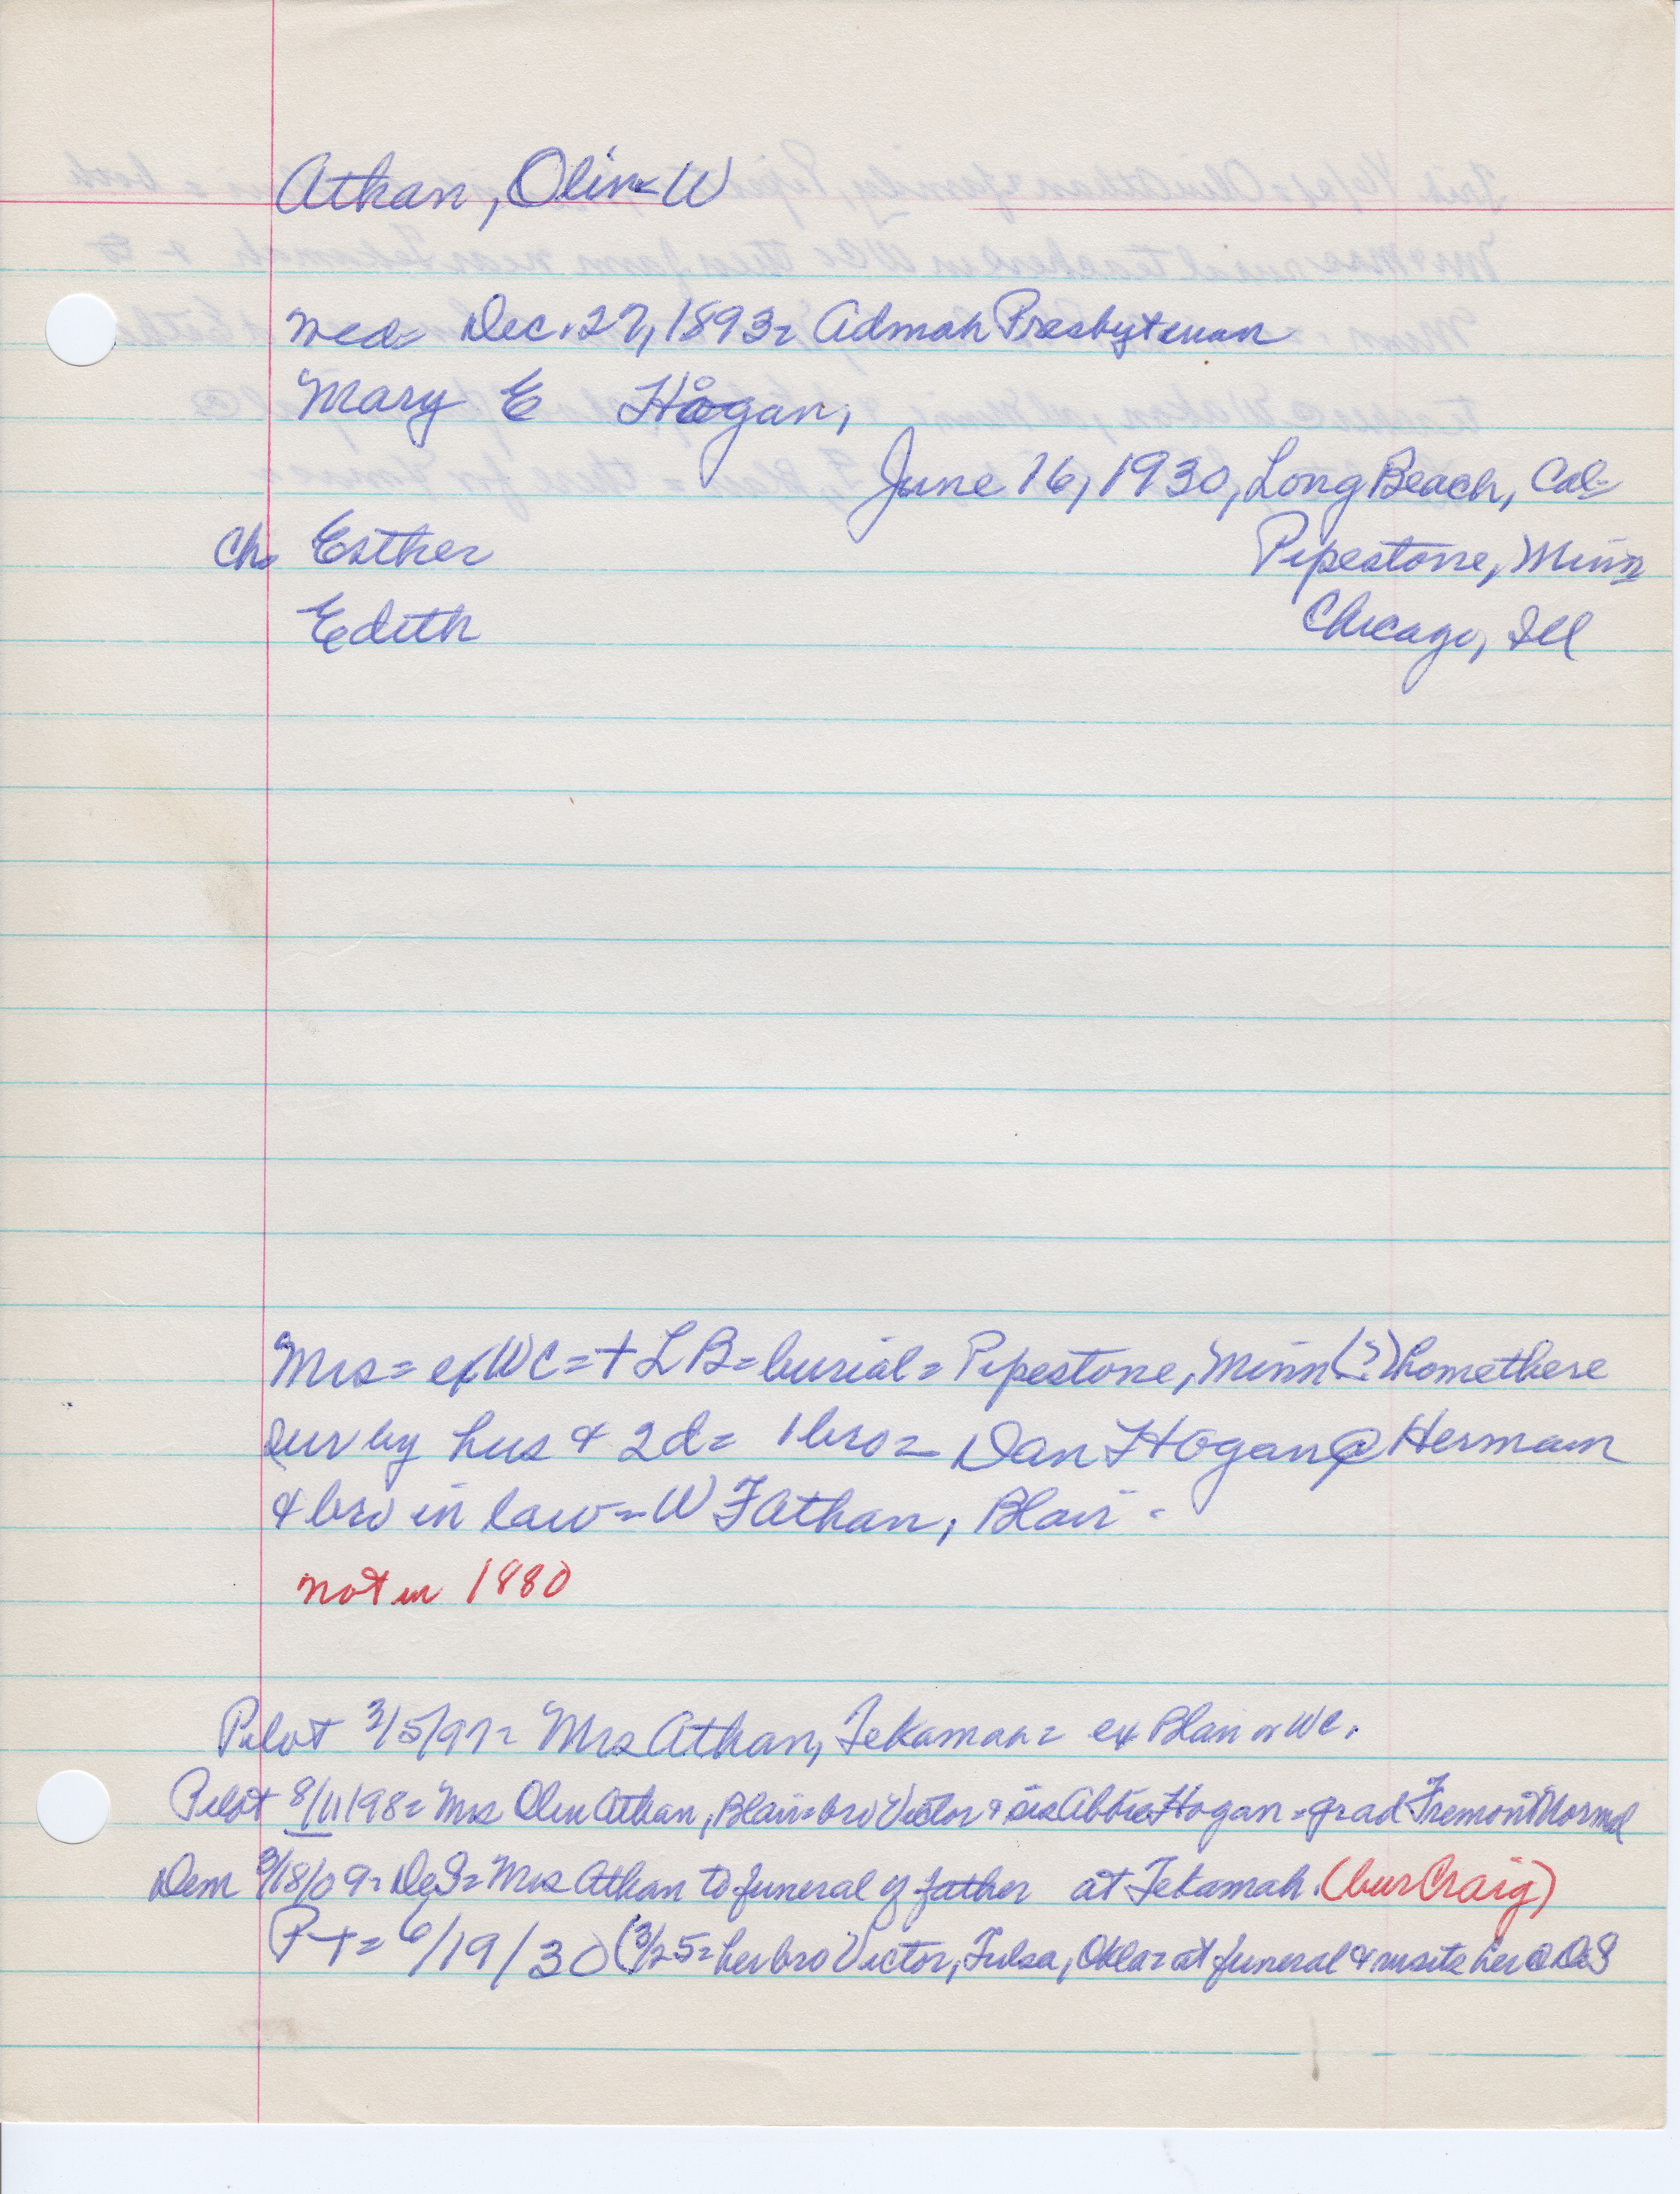 Athan, Olin W
wed Dec. 27, 1893 = Admah Presbyterian
Mary E Hogan,
June 16, 1930, Long Beach, Cal
Ch Esther Pipestone, Minn
Edith Chicago, Ill
Mrs = ex WC = + LB = burial = Pipestone, Minn (?) home there
sur by hus & 2d = 1 bro = Dan Hogan @ Herman
& bro in law = W F Athan, Blair -
not in 1880
Pilot 3/5/97 = Mrs Athan, Tekamah = ex Blair or WC.
Pilot 8/11/98 = Mrs Olin Athan, Blair = bro Victor & sis Abbie Hogan = grad Fremont Normal
Dem 3/18/09 = DeS = Mrs Athan to funeral of father at Tekamah. (bur Craig)
P-T = 6/19/30 (3/25 = her bro Victor, Tulsa, Okla = at funeral & visits her @ DeS